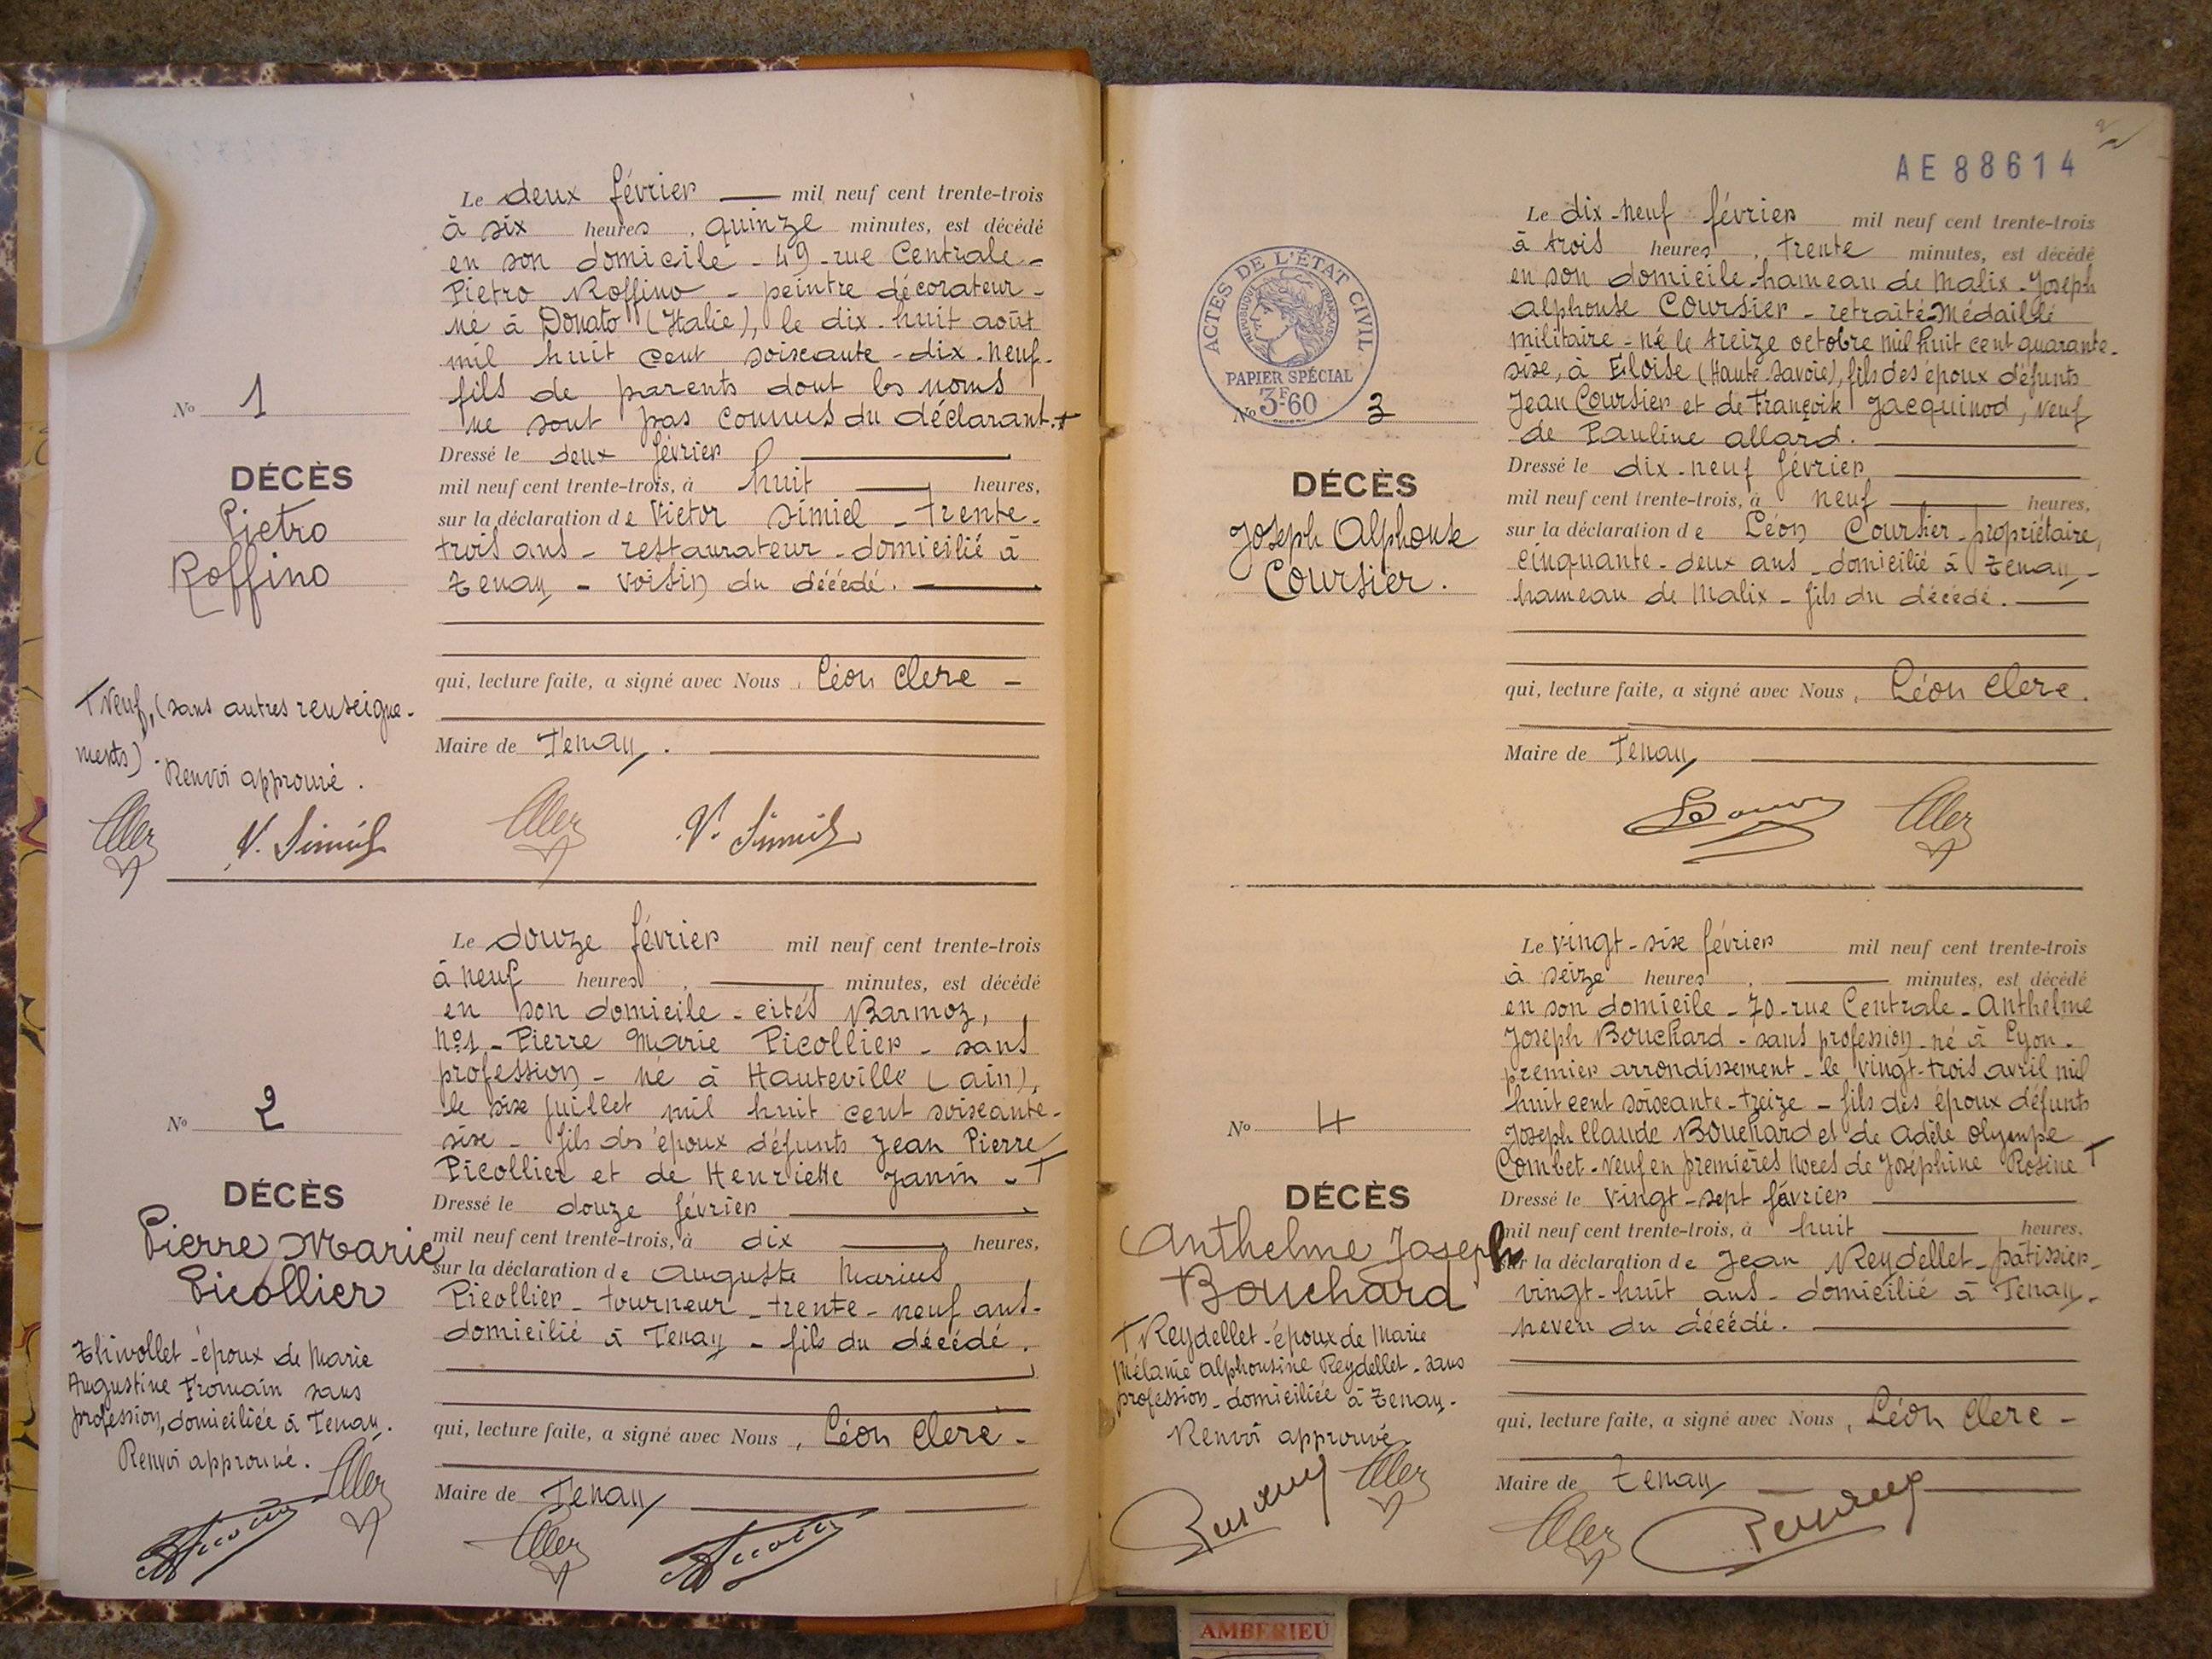 Le deux février mil neuf cent trente-trois
à six heures, quinze minutes, est décédé
en son domicile - 49 - rue Centrale -
Pietro Roffino - peintre décorateur -
né à Donato (Italie), le dix-huit août
mil huit cent soixante-dix-neuf -
fils de parents dont les noms
ne sont pas connus du déclarant. +
Dressé le deux février
mil neuf cent trente-trois, à huit heures,
sur la déclaration de Victor Simiel - trente-
trois ans - restaurateur - domicilié à
Tenay - voisin du décédé.
qui, lecture faite, a signé avec Nous, Léon Clerc -
Maire de Tenay.
No 1
DÉCÈS
Pietro
Roffino
+ Veuf, (sans autres renseigne-
ments).
Renvoi approuvé.
V. Simiel
V. Simiel
Le douze février mil neuf cent trente-trois
à neuf heures, minutes, est décédé
en son domicile - cités Barmoz,
No 1 - Pierre Marie Picollier - sans
profession - né à Hauteville (Ain),
le six juillet mil huit cent soixante-
six - fils des époux défunts Jean Pierre
Picollier et de Henriette Janin - +
Dressé le douze février
mil neuf cent trente-trois, à dix heures,
sur la déclaration de Auguste Marius
Picollier - tourneur - trente-neuf ans -
domicilié à Tenay - fils du décédé.
qui, lecture faite, a signé avec Nous, Léon Clerc -
Maire de Tenay
No 2
DÉCÈS
Pierre Marie
Picollier
Thivollet - époux de Marie
Augustine Fromain sans
profession, domiciliée à Tenay.
Renvoi approuvé.
AE 88614
ACTES DE L'ÉTAT CIVIL
RÉPUBLIQUE FRANÇAISE
PAPIER SPÉCIAL
3F-60
Le dix-neuf février mil neuf cent trente-trois
à trois heures, trente minutes, est décédé
en son domicile - hameau de Malix - Joseph
Alphonse Coursier - retraité - Médaillé
militaire - né le treize octobre mil huit cent quarante-
six, à Eloise (Haute-Savoie), fils des époux défunts
Jean Coursier et de Françoise Jacquinod, veuf
de Pauline Allard.
Dressé le dix-neuf février
mil neuf cent trente-trois, à neuf heures,
sur la déclaration de Léon Coursier - propriétaire,
cinquante-deux ans - domicilié à Tenay -
hameau de Malix - fils du décédé.
qui, lecture faite, a signé avec Nous, Léon Clerc.
Maire de Tenay
No 3
DÉCÈS
Joseph Alphonse
Coursier.
Le vingt-six février mil neuf cent trente-trois
à seize heures, minutes, est décédé
en son domicile - 70 - rue Centrale - Anthelme
Joseph Bouchard - sans profession - né à Lyon -
premier arrondissement - le vingt-trois avril mil
huit cent soixante-treize - fils des époux défunts
Joseph Claude Bouchard et de Adèle Olympe
Combet - veuf en premières noces de Joséphine Rosine +
Dressé le vingt-sept février
mil neuf cent trente-trois, à huit heures.
sur la déclaration de Jean Reydellet - pâtissier -
vingt-huit ans - domicilié à Tenay -
neveu du décédé.
qui, lecture faite, a signé avec Nous, Léon Clerc -
Maire de Tenay
No 4
DÉCÈS
Anthelme Joseph
Bouchard
+ Reydellet - époux de Marie
Mélanie Alphonsine Reydellet - sans
profession - domiciliée à Tenay -
Renvoi approuvé.
AMBERIEU